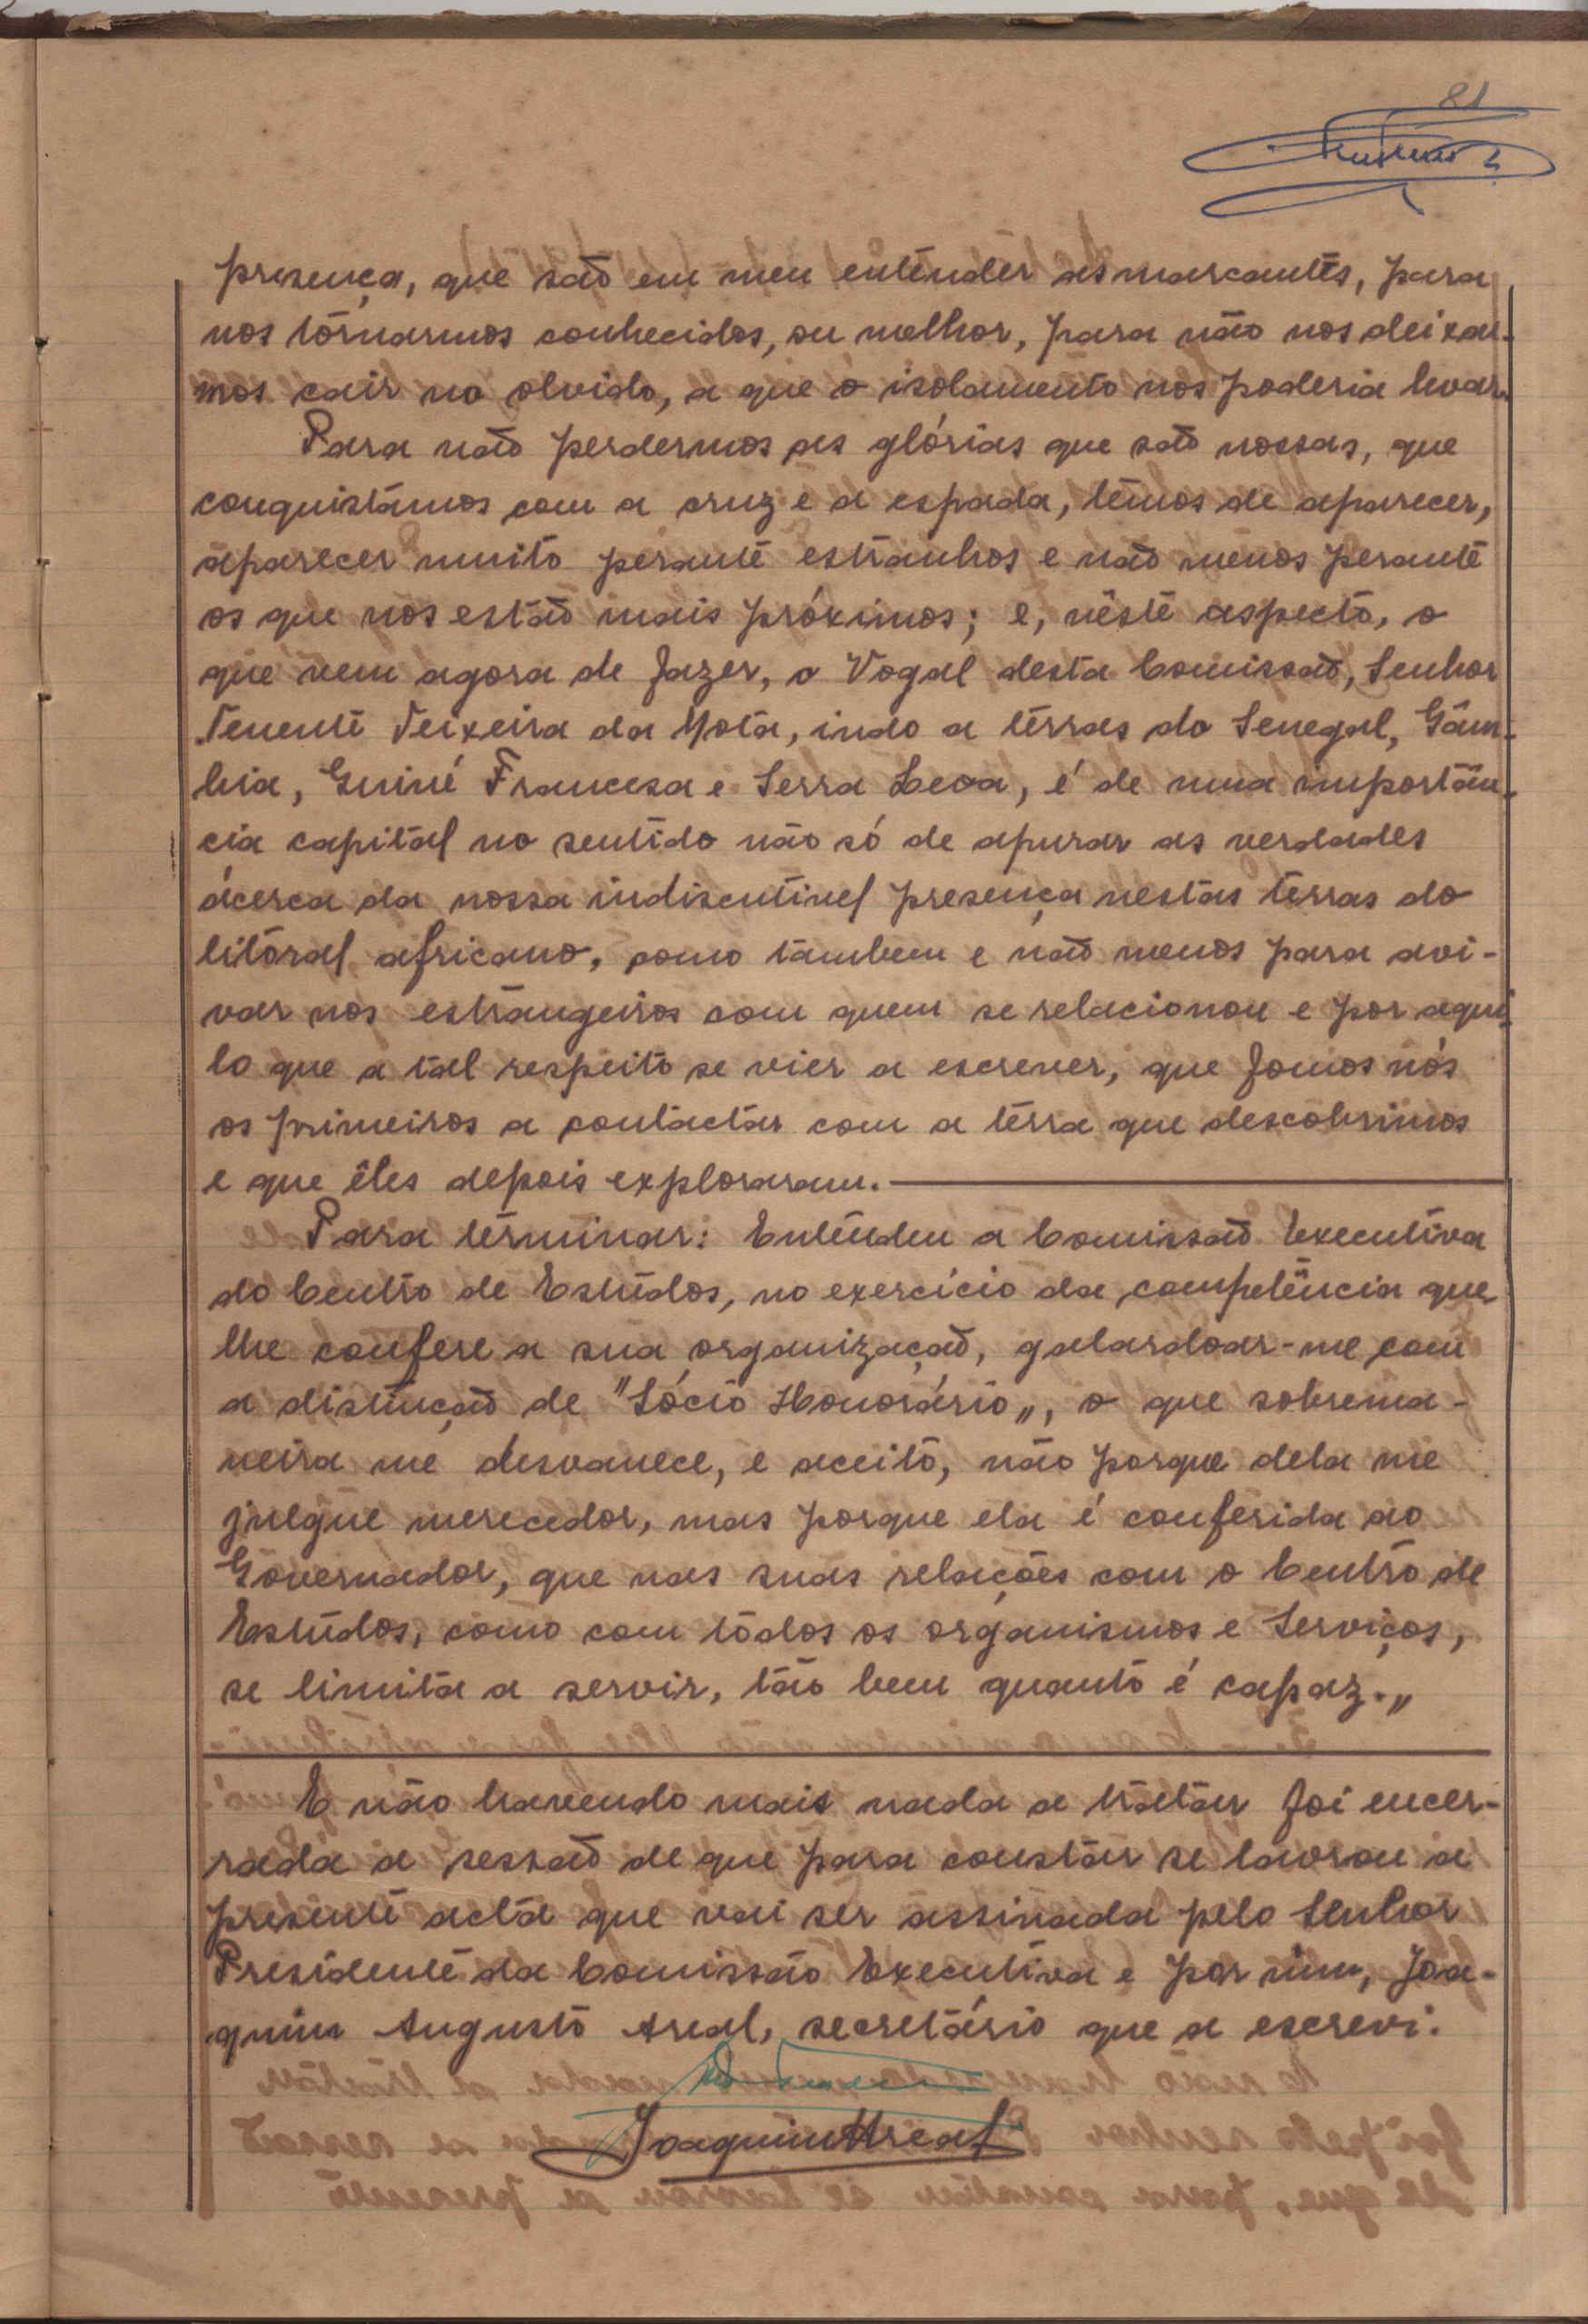 81
presença, que são em meu entender as marcantes, para
nos tornarmos conhecidos, ou melhor, para não nos deixar-
mos cair no olvido, a que o isolamento nos poderia levar.
Para não perdermos as glórias que são nossas, que
conquistámos com a cruz e a espada, temos de aparecer,
aparecer muito perante estranhos e não menos perante
os que nos estão mais próximos; e, nêste aspecto, o
que vem agora de fazer, o Vogal desta Comissão, Senhor
Tenente Teixeira da Mota, indo a terras do Senegal, Gâm-
bia, Guiné Francesa e Serra Leoa, é de uma importân-
cia capital no sentido não só de apurar as verdades
ácerca da nossa indiscutivel presença nestas terras do
litoral africano, como tambem e não menos para avi-
var nos estrangeiros com quem se relacionou e por aqui-
lo que a tal respeito se vier a escrever, que fomos nós
os primeiros a contactar com a terra que descobrimos
e que êles depois exploraram.
Para terminar: Entendeu a Comissão Executiva
do Centro de Estudos, no exercício da competência que
lhe confere a sua organização, galardoar-me com
a distinção de "Sócio Honorário„, o que sobrema-
neira me desvanece, e aceito, não porque dela me
julgue merecedor, mas porque ela é conferida ao
Governador, que nas suas relações com o Centro de
Estudos, como com todos os organismos e Serviços,
se limita a servir, tão bem quanto é capaz.„
E não havendo mais nada a tratar foi encer-
rada a sessão de que para constar se lavrou a
presente acta que vai ser assinada pelo Senhor
Presidente da Comissão Executiva e por mim, Joa-
quim Augusto Areal, secretário que a escrevi.
Joaquim Areal